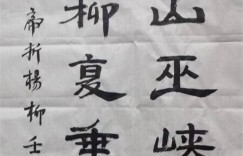 山巫峡
柳夏垂
帝折杨柳壬